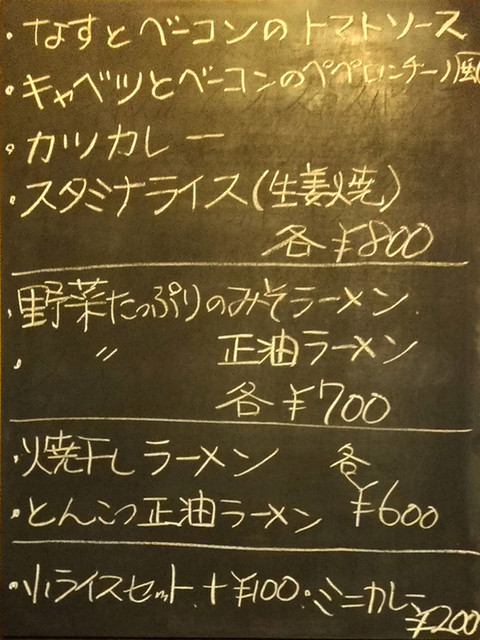 ・なすとベーコンのトマトソース
・キャベツとベーコンのペペロンチーノ風
・カツカレー
・スタミナライス(生姜焼)
各¥800
・野菜たっぷりのみそラーメン
・ 〃 正油ラーメン
各¥700
・焼干しラーメン 各
・とんこつ正油ラーメン ¥600
・小ライスセット +¥100・ミニカレー
¥200